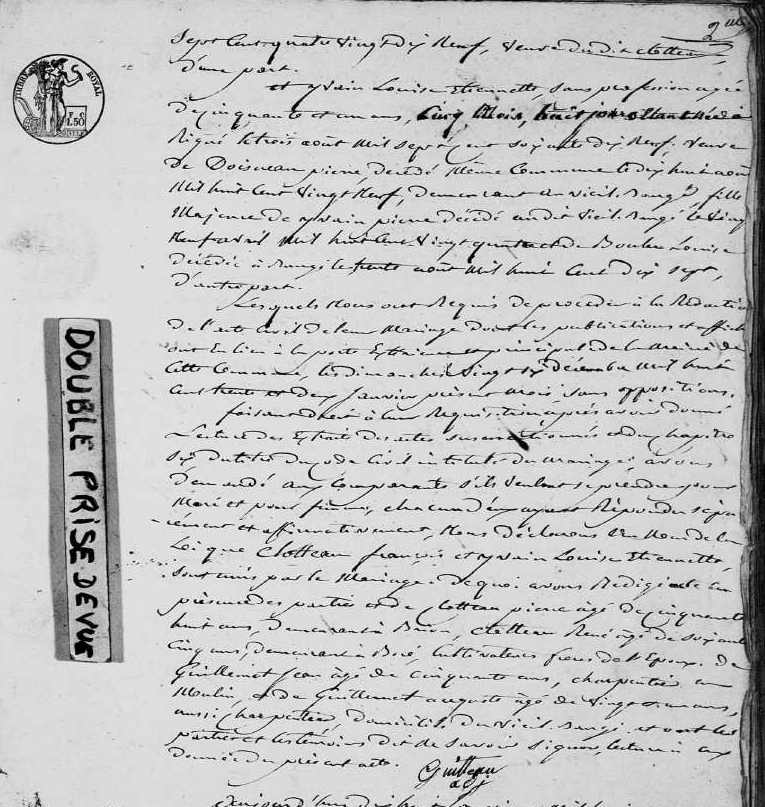 TIMBRE ROYAL
1.50
DOUBLE PRISE DE VUE
Sept Cent quatre Vingt dix Neuf, Veuve du dit Clotteau,
D'une part.
et yvain Louise Etiennette, sans profession agée
De cinquante et un ans, Cinq Mois, huit jours étant Née à
Rigné le trois août Mil Sept Cent Soixante dix Neuf, Veuve
De Doisneau pierre décédé Même Commune le dix huit août
Mil huit Cent Vingt Neuf, demeurant au Vieil. Baugé, fille
Majeure de yvain pierre décédé audit Vieil. Baugé le Vingt
Neuf avril Mil huit Cent Vingt quatre et de Louise
Décédée à Baugé le trente août Mil huit Cent Dix Sept,
D'autre part.
Lesquels Nous ont Requis de procéder à la Rédaction
De l'acte Civil de leur Mariage dont les publications et affiches
ont En lieu à la porte Extérieure et principale de la Mairie de
Cette Commune, les dimanches Vingt Six décembre Mil huit
Cent trente et Deux Janvier présent Mois, sans oppositions.
faisant droit à leur Requisition, après avoir donné
Lecture des Extraits des actes susmentionnés et du chapitre
Six du titre du Code Civil intitulé du Mariage, avons
Demandé aux Comparants s'ils Veulent se prendre pour
Mari et pour femme, chacun d'eux ayant Répondu sépa-
rément et affirmativement, Nous Déclarons au Nom de la
Loi que Clotteau françois et yvain Louise Etiennette,
Sont unis par le Mariage. De quoi avons Rédigé acte en
présence des parties et de Clotteau pierre âgé de cinquante
huit ans, Demeurant à Brion, Clotteau René âgé de soixante
Cinq ans, demeurant à Bocé, Cultivateurs freres de l'Epoux. De
Guillemet Jean âgé de cinquante ans, charpentier au
Moulin, et de Guillemet auguste âgé de Vingt ans,
aussi Charpentier, Domiciliés du Vieil. Baugé, et ont les
parties et les témoins dit ne savoir signer, lecture à eux
Donnée du présent acte.
adjt
Aujourd'hui